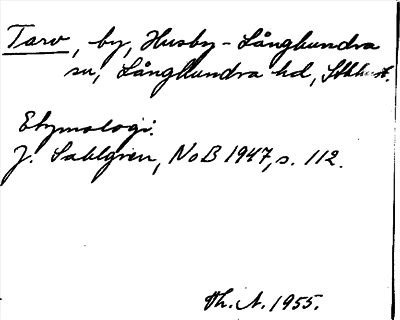 Tarv, by, Husby-Långhundra
sn, Långhundra hd, Sthlms l.
Etymologi.
J. Sahlgren, NoB 1947, s. 112.
Th. A. 1955.